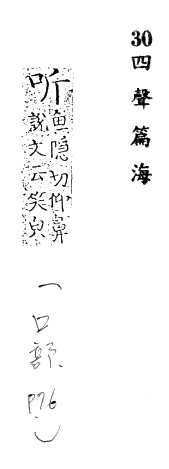 30四聲篇海
听
魚隱切仰鼻
說文云笑皃
(口部. P76)